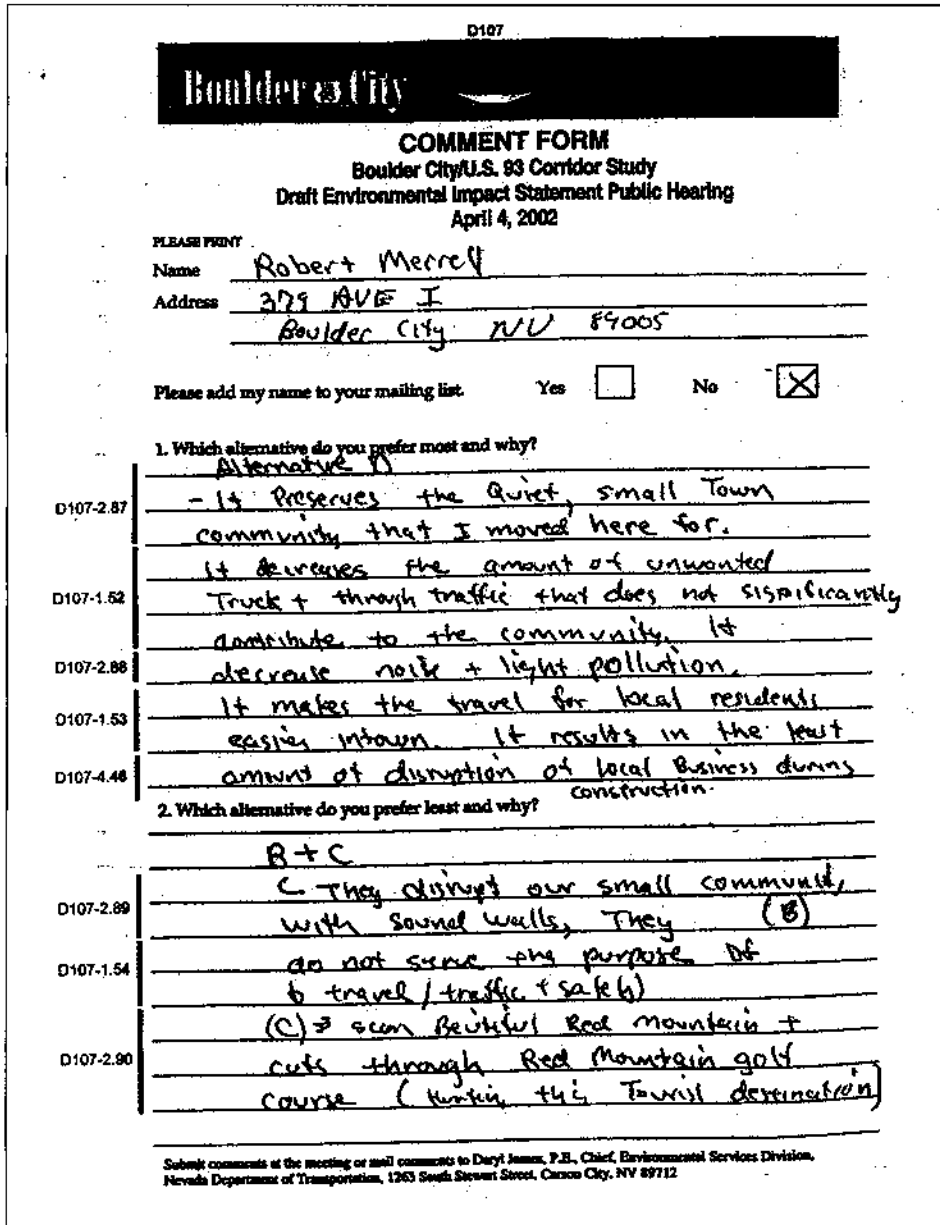 D107
Boulder City
COMMENT FORM
Boulder City/U.S. 93 Corridor Study
Draft Environmental Impact Statement Public Hearing
April 4, 2002
PLEASE PRINT
Name Robert Merrell
Address 379 AVE I
Boulder City NV 89005
Please add my name to your mailing list. Yes No X
1. Which alternative do you prefer most and why?
Alternative D
D107-2.87 - It Preserves the Quiet, small Town
community that I moved here for.
It decreases the amount of unwanted
D107-1.52 Truck + through traffic that does not significantly
contribute to the community. It
D107-2.88 decrease noise + light pollution.
D107-1.53 It makes the travel for local residents
easier intown. It results in the least
D107-4.46 amount of disruption of local Business during
construction.
2. Which alternative do you prefer least and why?
B + C
D107-2.89 They disrupt our small community
with sound walls, They (B)
D107-1.54 do not serve the purpose
travel / traffic + safety)
(C) Beutiful Red Mountain +
D107-2.90 cuts through Red Mountain golf
course ( Tourist destination)
Submit comments at the meeting or mail comments to Daryl James, P.E., Chief, Environmental Services Division,
Nevada Department of Transportation, 1263 South Stewart Street, Carson City, NV 89712